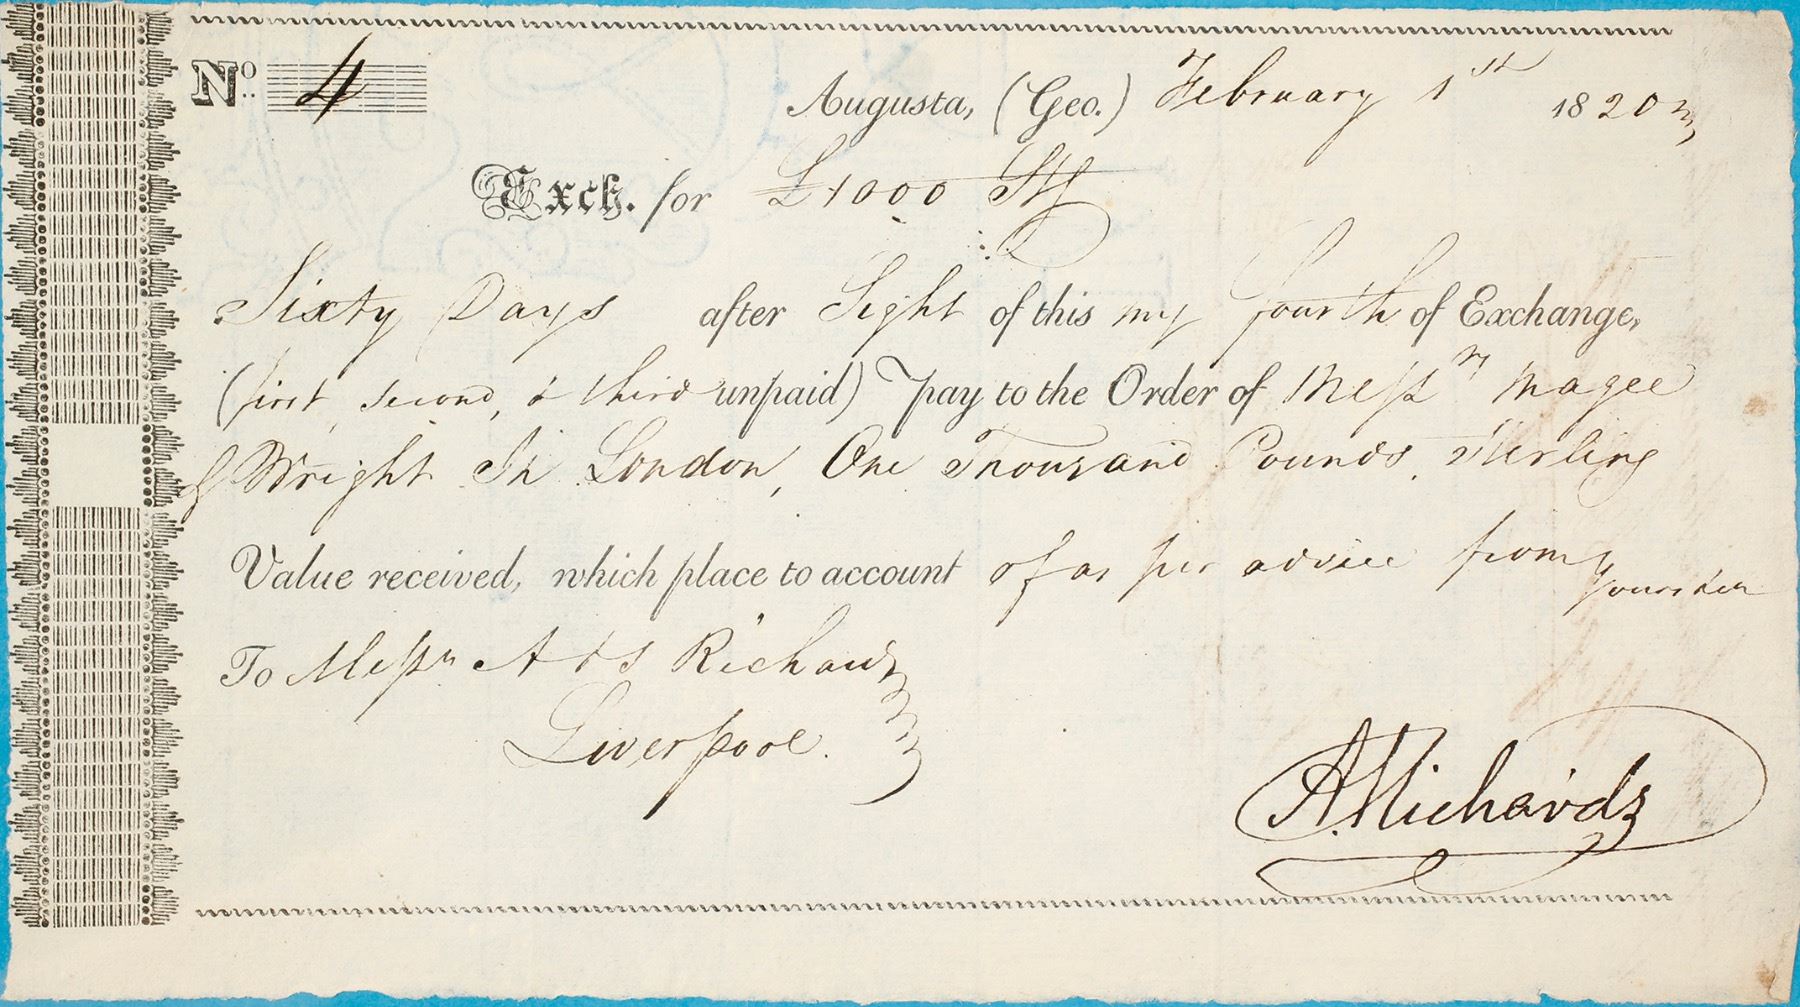 No. 4
Augusta, (Geo.) February 1st 1820
Exch. for £1000 Stg
Sixty Days after Sight of this my fourth of Exchange,
(first, second, & third unpaid) pay to the Order of Messrs Magee
& Wright In London, One Thousand Pounds, Sterling
Value received, which place to account of as per advice from
To Messrs A & S Richards
Liverpool.
A. Richards